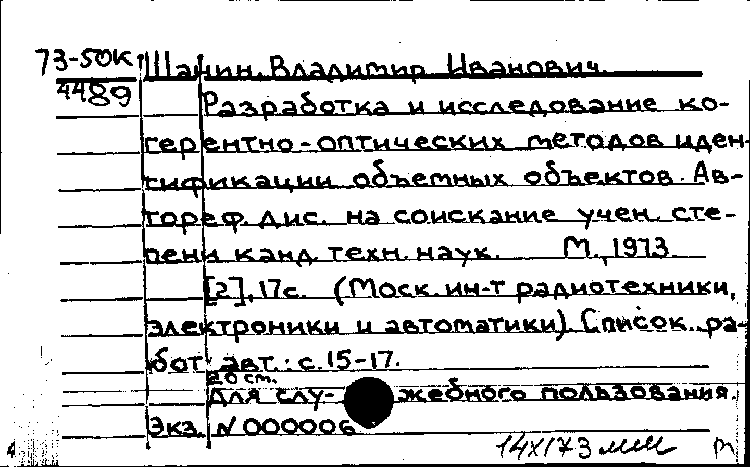 73-50К Шанин, Владимир Иванович.
4489
Разработка и исследование ко-
герентно-оптических методов иден-
тификации объемных объектов. Ав-
тореф. дис. на соискание учен. сте-
пени канд. техн. наук. М., 1973.
[2], 17с. (Моск. ин-т радиотехники,
электроники и автоматики). Список ра-
бот авт.: с. 15-17.
20 см.
Для слу- жебного пользования.
Экз. N 000006
14X173мм